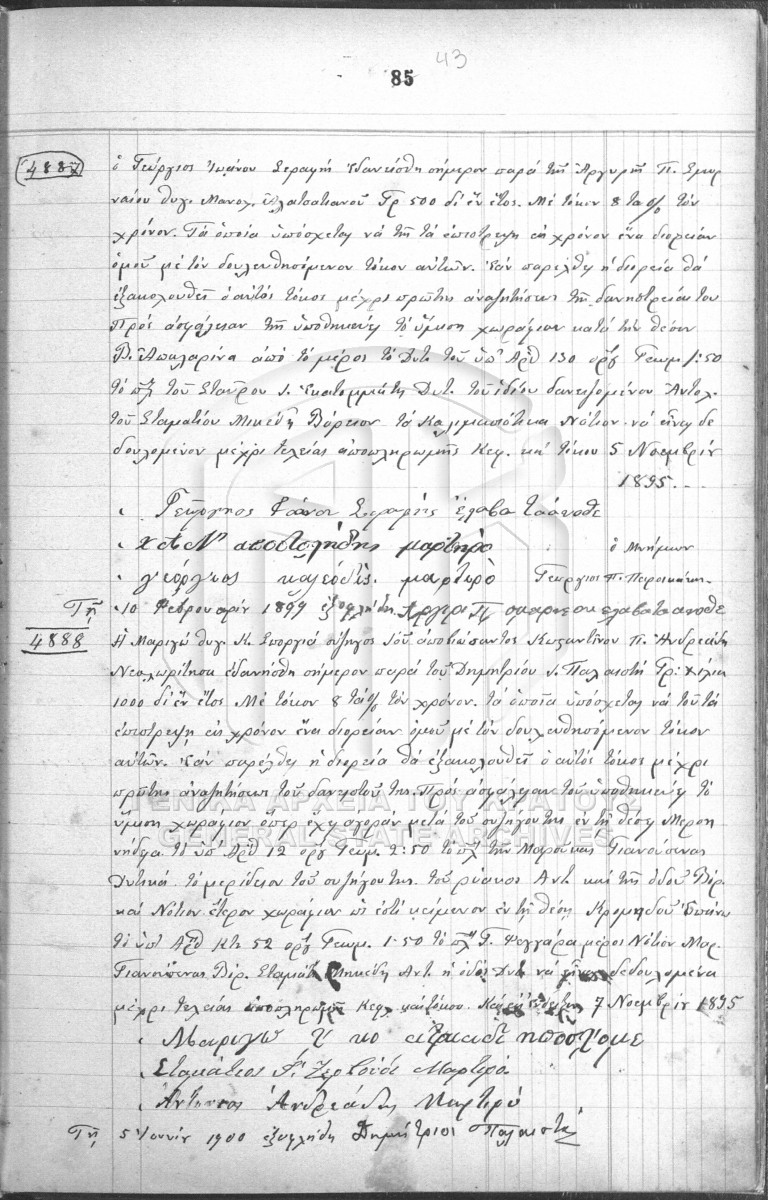 43
85
4887
ὁ Γεώργιος Ἰωάνου Σεραφὴ ἐδανείσθη σήμερον παρὰ τῆς Ἀργυρῆς Π. Σμυρ
ναίου θυγ. Μανολ. Γρ 500 δι' ἓν ἔτος. Μὲ τόκον 8 τα % τὸν
χρόνον. Τὰ ὁποῖα ὑπόσχεται νὰ τῆς τὰ ἐπιστρεψῃ εἰς χρόνον ἕνα διορείαν
ὁμοῦ μὲ τὸν δουλευθησόμενον τόκον αὐτῶν. Ἐὰν παρέλθῃ ἡ διορεία θὰ
ἐξακολουθεῖ ὁ αὐτὸς τόκος μέχρι πρώτης ἀναζητήσεως τῆς δανηστρείας του
Πρὸς ἀσφάλειαν τῆς ὑποθηκεύει τὸ ἥμιση χωράφιον κατὰ τὴν θέσιν
ἀπὸ τὸ μέρος τὸ Δυτ. τοῦ ὑπ' Ἀρθ 130 ὁρζ Γεωμ 1:50
τὸ πλ τοῦ Σταύρου Ι. Δυτ. τοῦ ἰδίου δανειζομένου Ἀντολ.
τοῦ Σταματίου Μικέδη Βόρειον τὰ Νότιον νὰ εἶναι δε
δουλομένον μέχρι τελείας ἀποπληρωμῆς Κεφ. καὶ τόκου 5 Νοεμβρίου
1895
Γεώργηος Ἰοάνου Σεραφῆς ἔλαβα τὰ ἄνοθε
μαρτηρὸ
ὁ Μνήμων
γεόργιος μαρτιρὸ Γεώργιος Π.
Τῇ 10 Φεβρουαρίου 1899 ἐξοφλήθη ἐλαβα τα ανοθε
4888
Ἡ Μαριγώ θυγ. Κ. Σποργιά σύζηγος τοῦ ἀποβιώσαντος Κωσταντίνου Π. Ἀνδρεάδη
Νεοχωρίτησα ἐδανήσθη σήμερον παρὰ τοῦ Δημητρίου Ι. Παλαιστή Γρ: χίλια
1000 δι' ἓν ἔτος. Μὲ τόκον 8 τὰ % τὸν χρόνον. τὰ ὁποῖα ὑπόσχεται νὰ τοῦ τὰ
ἐπιστρεψῃ εἰς χρόνον ἕνα διορείαν ὁμοῦ μὲ τὸν δουλευθησόμενον τόκον
αὐτῶν. Ἐὰν παρέλθῃ ἡ διορεία θὰ ἐξακολουθεῖ ὁ αὐτὸς τόκος μέχρι
πρώτης ἀναζητήσεως τοῦ δανειστοῦ της. Πρὸς ἀσφάλειαν τοῦ ὑποθηκεύει τὸ
ἥμιση χωράφιον ὅπερ ἔχει ἀγορὰν μετὰ τοῦ συζήγου της ἐν τῇ θέσῃ
τὸ ὑπ' Ἀρθ 12 ὁρζ Γεωμ. 2:50 τὸ πλ τὴν Μαρούκας Γιανούσενας
Δυτικὰ τὸ μερίδειον τοῦ συζήγου της τοῦ ρύακος Ἀντ. καὶ τῆς ὁδοῦ Βόρ.
καὶ Νότιον ἕτερον χωράφιον κείμενον ἐν τῇ θέσῃ
τὸ ὑπ' Ἀρθ Κτζ 52 ὁρζ Γεωμ. 1-50 τὸ πλ Γ. Φεγγάρα μέρος Νότιον Μαρ.
Γιανούσενας Βόρ. Σταμάτ. Μηκέδη Ἀντ. ἡ ὁδὸς Δυτ. νὰ εἶναι δεδουλομένα
μέχρι τελείας ἀποπληρωμῆς Κεφ. καὶ τόκου. 7 Νοεμβρίου 1895
Μαριγω
Σταμάτιος Μαρτιρό
Ἀνδρεάδης Μαρτιρό
Τῇ 5 Ἰουνίου 1900 ἐξοφλήθη Δημήτριος Παλαιστή
ΓΕΝΙΚΑ ΑΡΧΕΙΑ ΤΟΥ ΚΡΑΤΟΥΣ
GENERAL STATE ARCHIVES